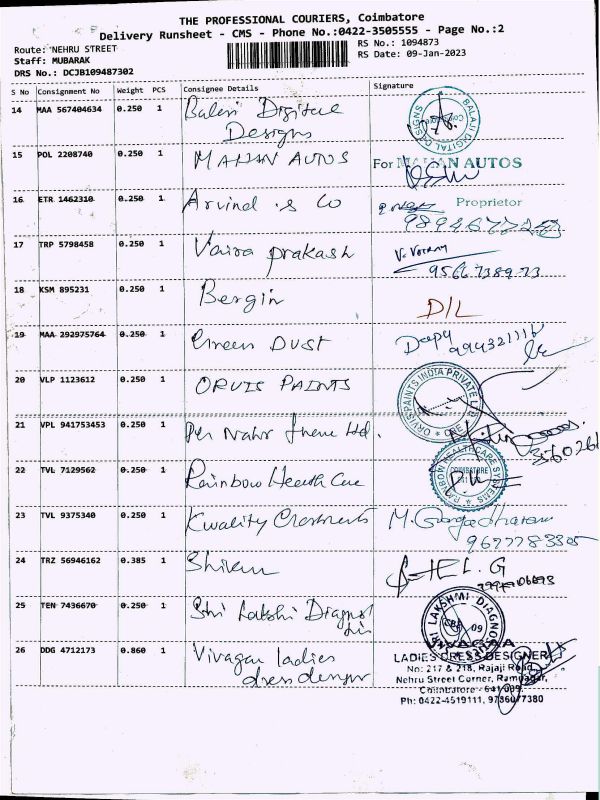 THE PROFESSIONAL COURIERS, Coimbatore
Delivery Runsheet - CMS - Phone No.:0422-3505555 - Page No.:2
Route: NEHRU STREET
Staff: MUBARAK
DRS No.: DCJB109487302
RS No.: 1094873
RS Date: 09-Jan-2023
S No Consignment No Weight PCS Consignee Details Signature
14 MAA 567404634 0.250 1 Balaji Digital
Designs
BALAJI DIGITAL DESIGNS
15 POL 2208740 0.250 1 MAHAN AUTOS
For MAHAN AUTOS
16 ETR 1462310 0.250 1 Arvind .s Co
Proprietor
17 TRP 5798458 0.250 1 Vaira prakash
9566738973
18 KSM 895231 0.250 1 Bergin D/L
19 MAA 292975764 0.250 1 Green DUST Deepa
20 VLP 1123612 0.250 1 ORVIS PAINTS
ORVIS PAINTS INDIA PRIVATE LTD
21 VPL 941753453 0.250 1
22 TVL 7129562 0.250 1 Rainbow Health Care
RAINBOW HEALTHCARE SYSTEMS
COIMBATORE
23 TVL 9375340 0.250 1 Kwality M. Gangadharan
9677783305
24 TRZ 56946162 0.385 1
25 TEN 7436670 0.250 1 Sri Lakshi
SHRI LAKSHMI DIAGNO
09
26 DDG 4712173 0.860 1 Vivagaa ladies
LADIES DRESS DESIGNER
No: 217 & 218, Rajaji Road,
Nehru Street Corner, Ramnagar,
Coimbatore - 641 009.
Ph: 0422-4519111, 9786077380